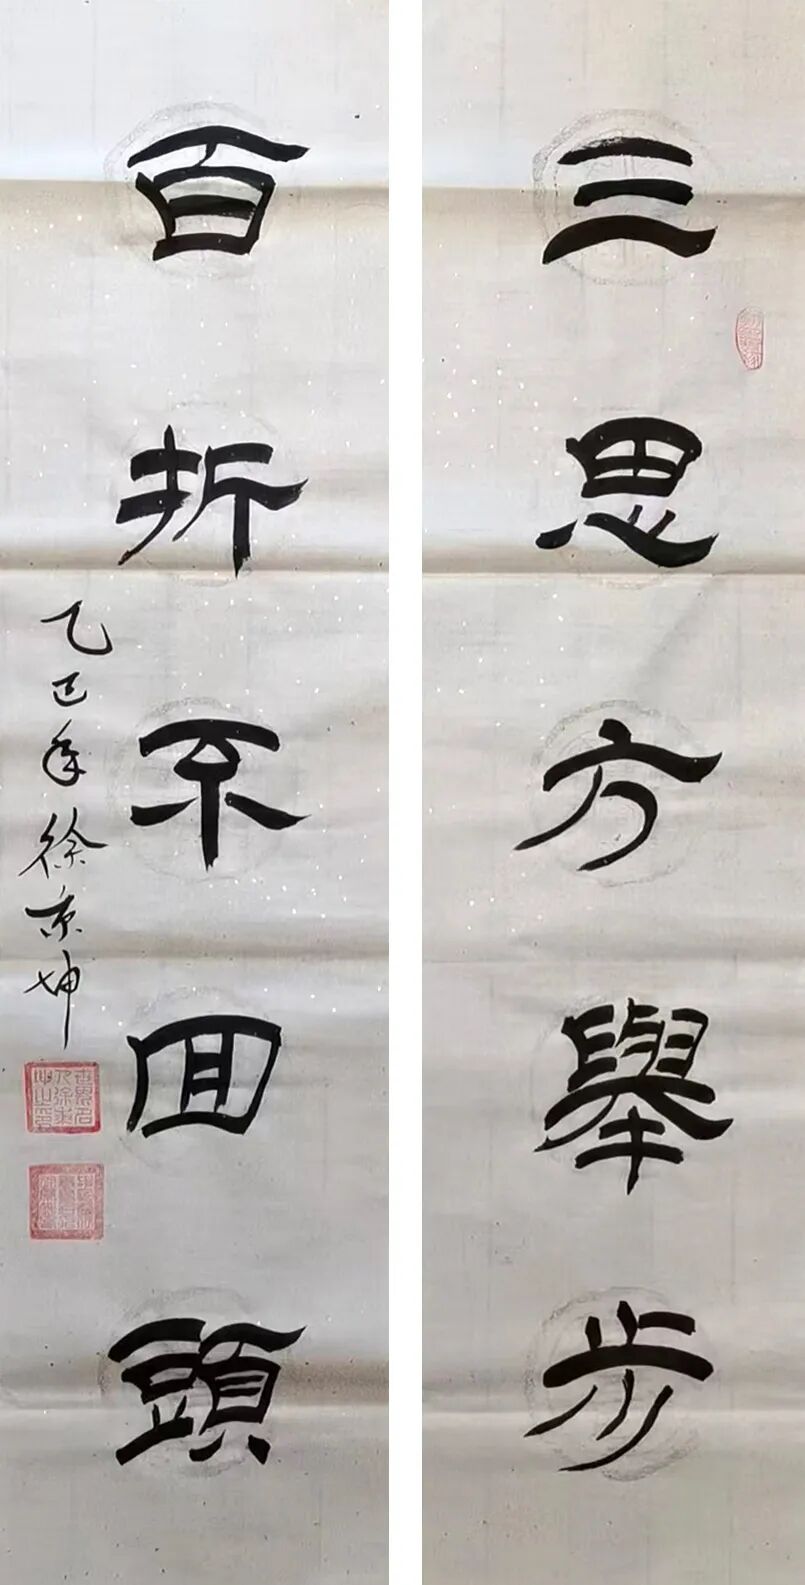 三思方舉步
百折不回頭
乙巳年徐京坤